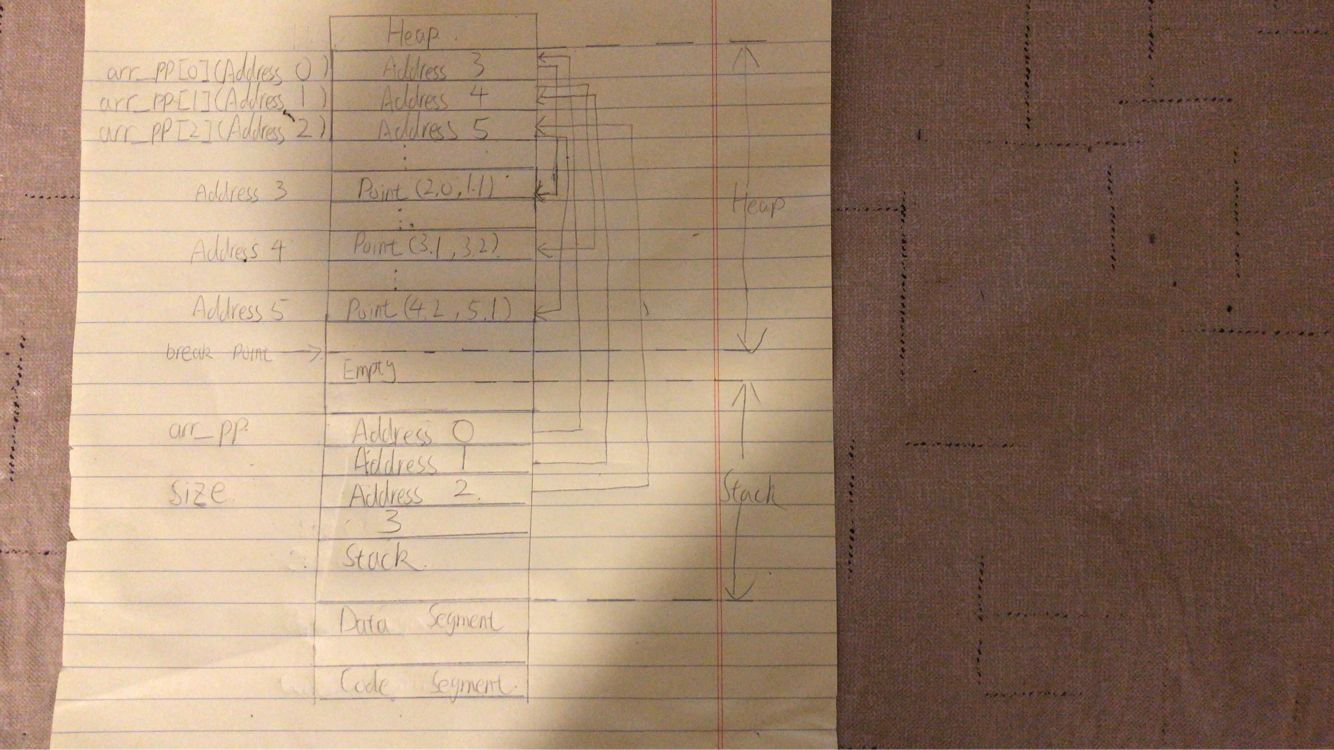 Heap
arr_pp[0](Address 0) Address 3
arr_pp[1](Address 1) Address 4
arr_pp[2](Address 2) Address 5
Address 3 Point (2.0, 1.1) Heap
Address 4 Point (3.1, 3.2)
Address 5 Point (4.2, 5.1)
break point
Empty
arr_pp Address 0
Address 1
size Address 2 Stack
3
Stack
Data Segment
Code Segment